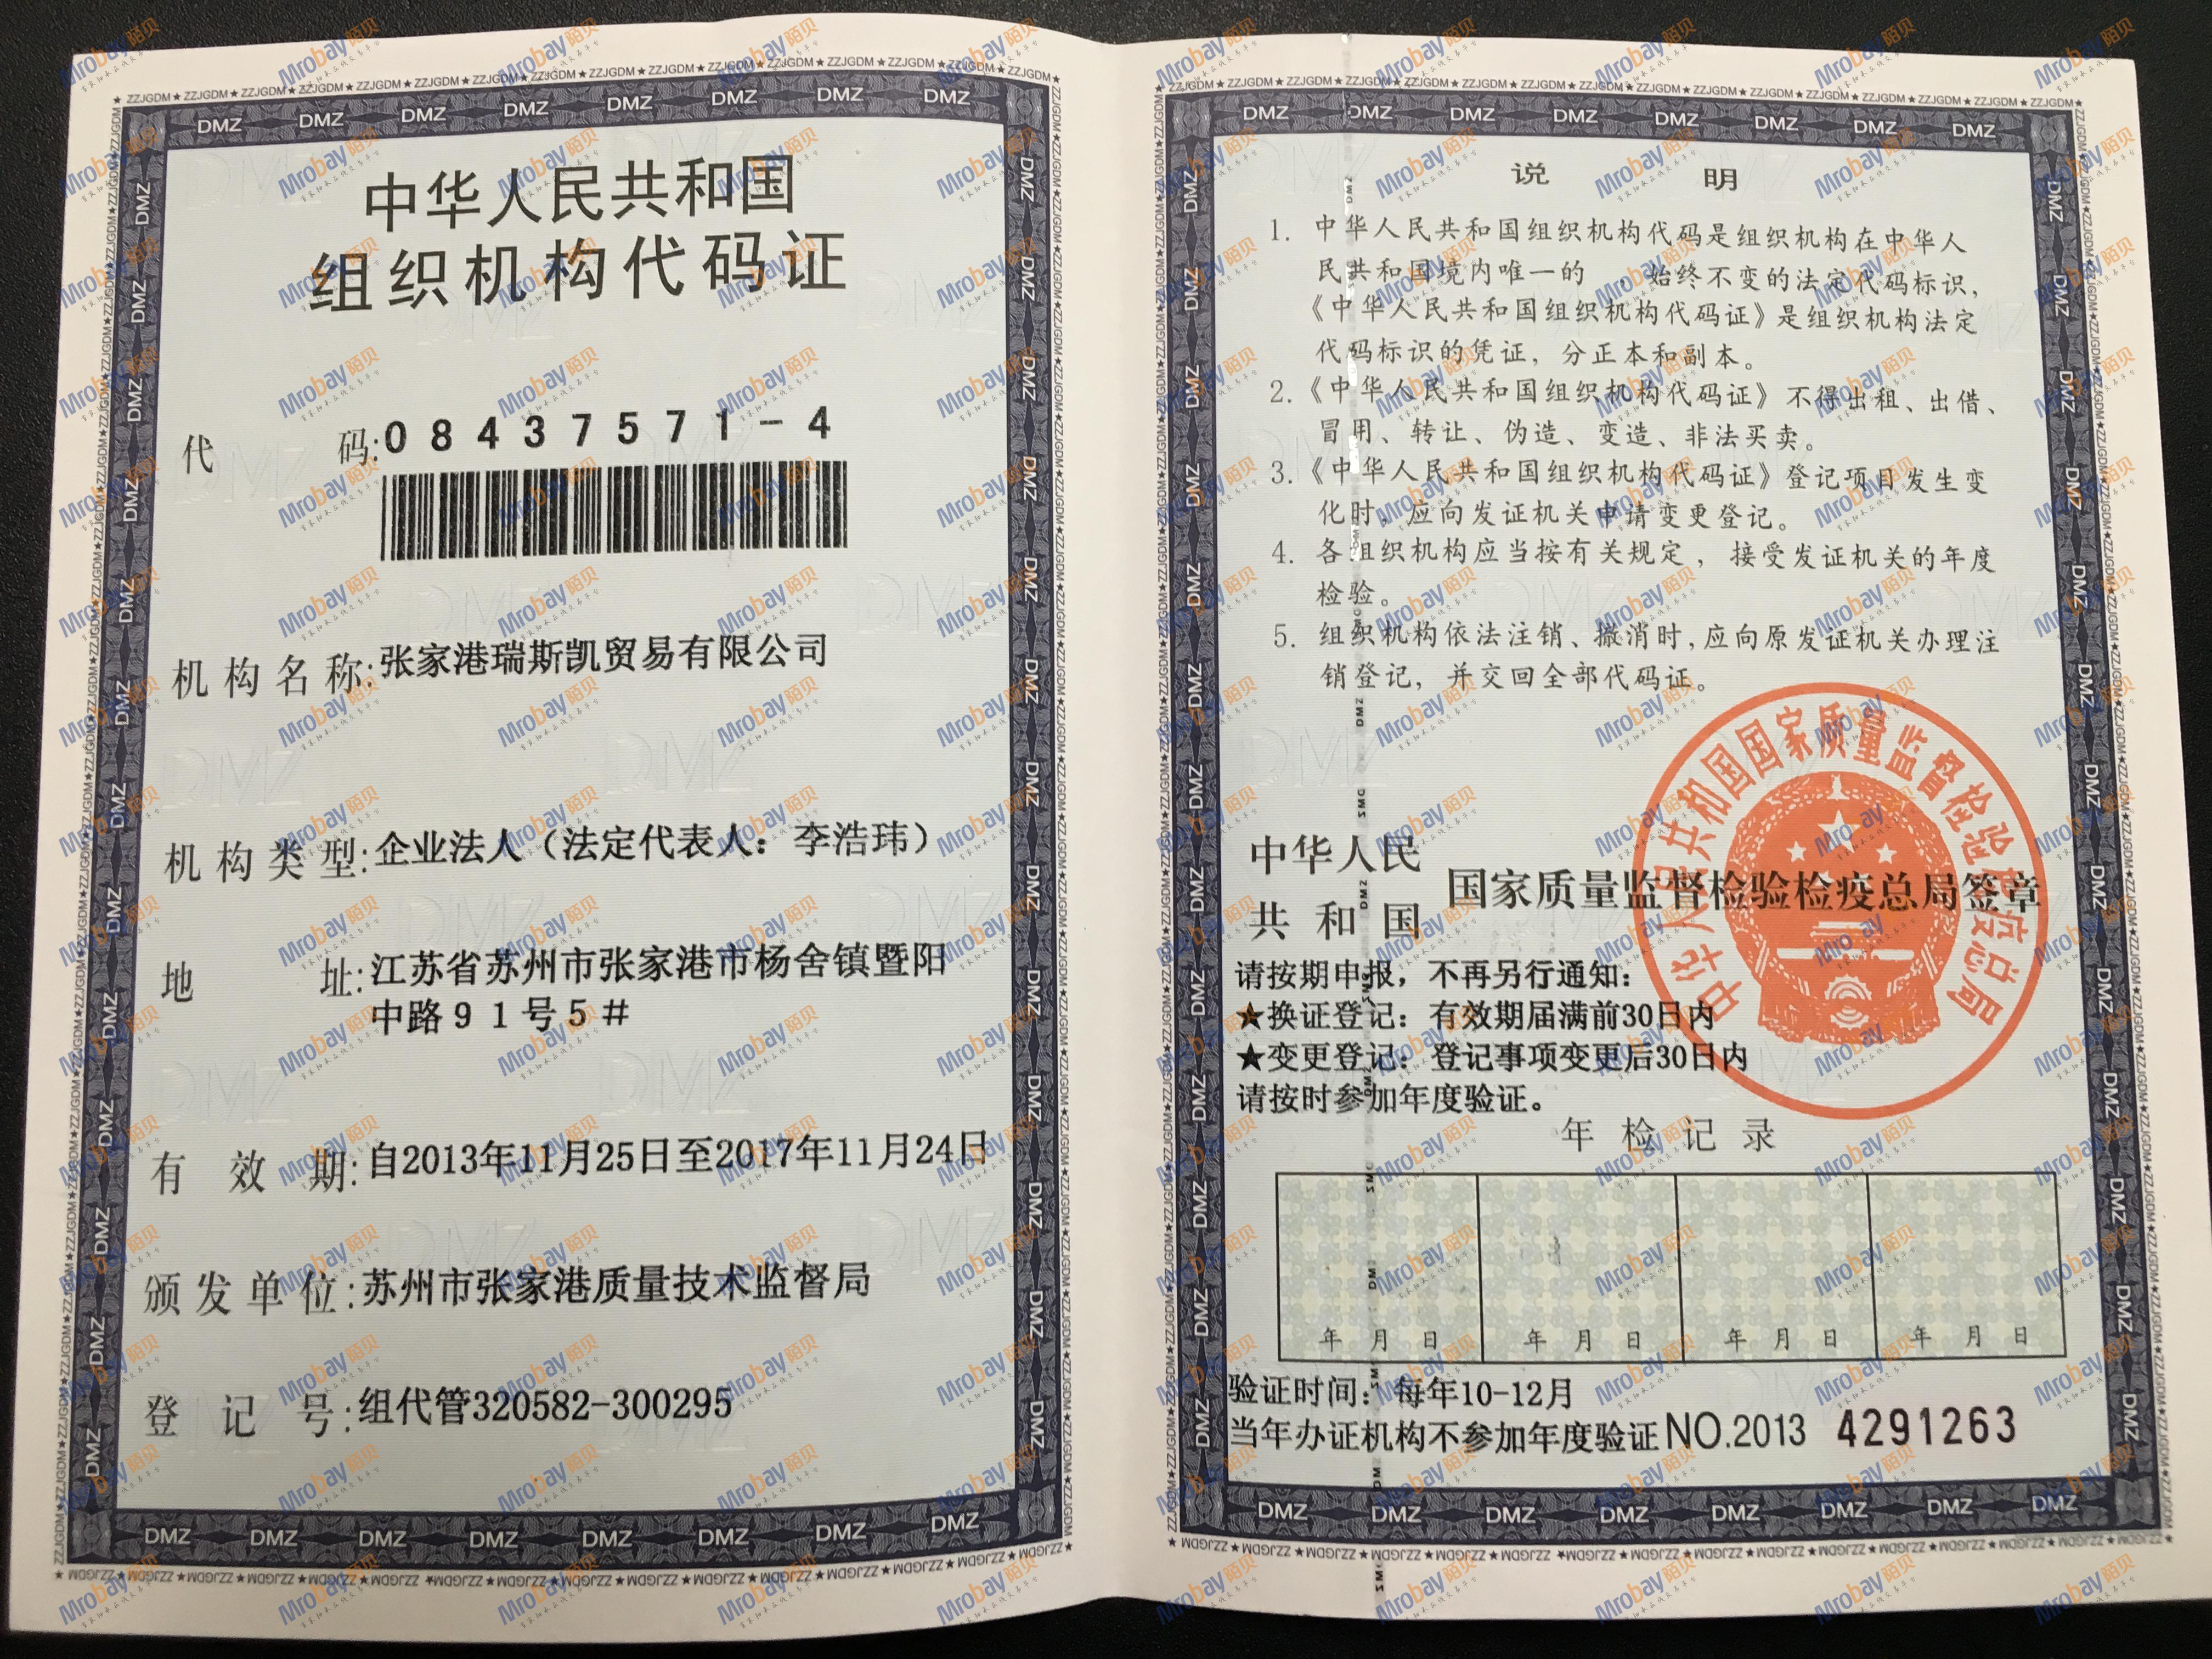 中华人民共和国
组织机构代码证
代 码:08437571-4
机构名称:张家港瑞斯凯贸易有限公司
机构类型:企业法人（法定代表人：李浩玮）
地 址:江苏省苏州市张家港市杨舍镇暨阳
中路９１号５＃
有效期:自2013年11月25日至2017年11月24日
颁发单位:苏州市张家港质量技术监督局
登记号:组代管320582-300295
说 明
1. 中华人民共和国组织机构代码是组织机构在中华人
民共和国境内唯一的 ，始终不变的法定代码标识，
《中华人民共和国组织机构代码证》是组织机构法定
代码标识的凭证，分正本和副本。
2.《中华人民共和国组织机构代码证》不得出租、出借、
冒用、转让、伪造、变造、非法买卖。
3.《中华人民共和国组织机构代码证》登记项目发生变
化时，应向发证机关申请变更登记。
4. 各组织机构应当按有关规定，接受发证机关的年度
检验。
5. 组织机构依法注销、撤消时,应向原发证机关办理注
销登记，并交回全部代码证。
中华人民共和国国家质量监督检验检疫总局
中华人民
共和国
国家质量监督检验检疫总局签章
请按期申报，不再另行通知：
★换证登记：有效期届满前30日内
★变更登记：登记事项变更后30日内
请按时参加年度验证。
年检记录
年 月 日 年 月 日 年 月 日 年 月 日
验证时间：每年10-12月
当年办证机构不参加年度验证 NO.2013 4291263
DMZ
ZZJGDM
Mrobay陌贝